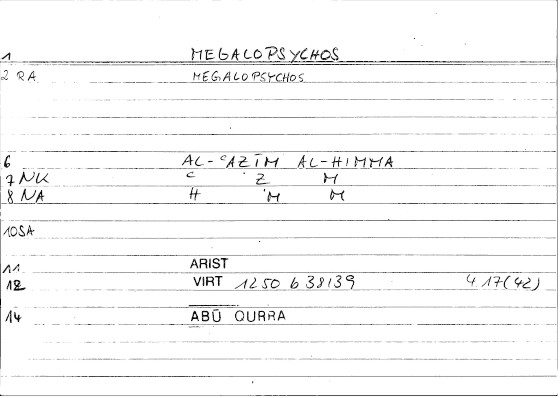 1 MEGALOPSYCHOS
2 RA MEGALOPSYCHOS
6 AL-ʿAẒĪM AL-HIMMA
7 NK ʿ Ẓ M
8 NA H M M
10SA
11 ARIST
12 VIRT 1250 b 38139 4 17(42)
14 ABŪ QURRA